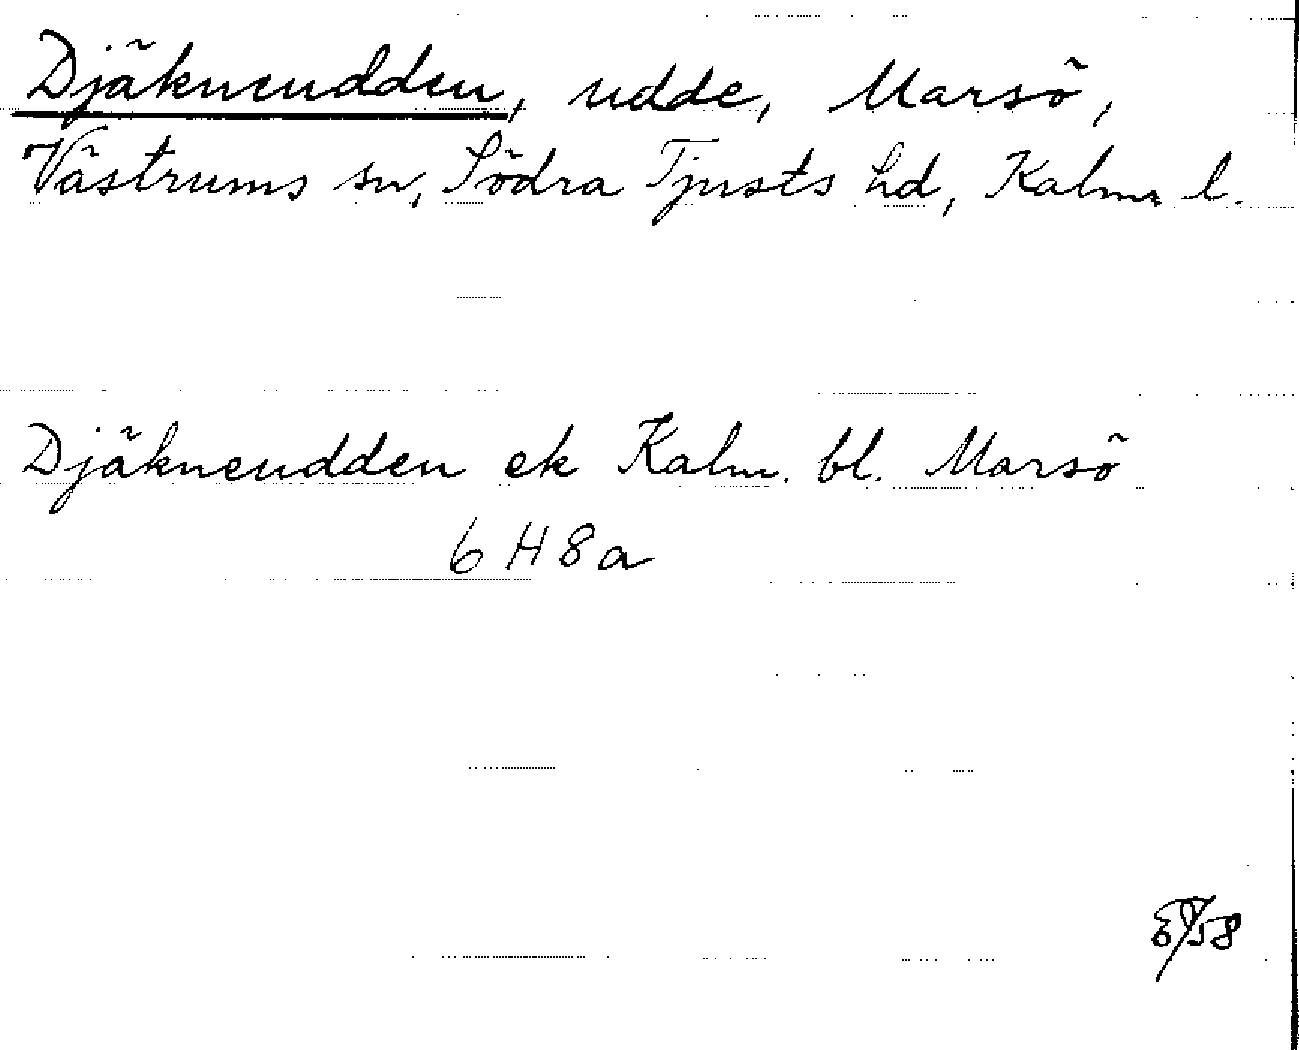 Djäkneudden, udde, Marsö,
Västrums sn, Södra Tjusts hd, Kalmar l.
Djäkneudden ek Kalm. bl. Marsö
6 H 8 a